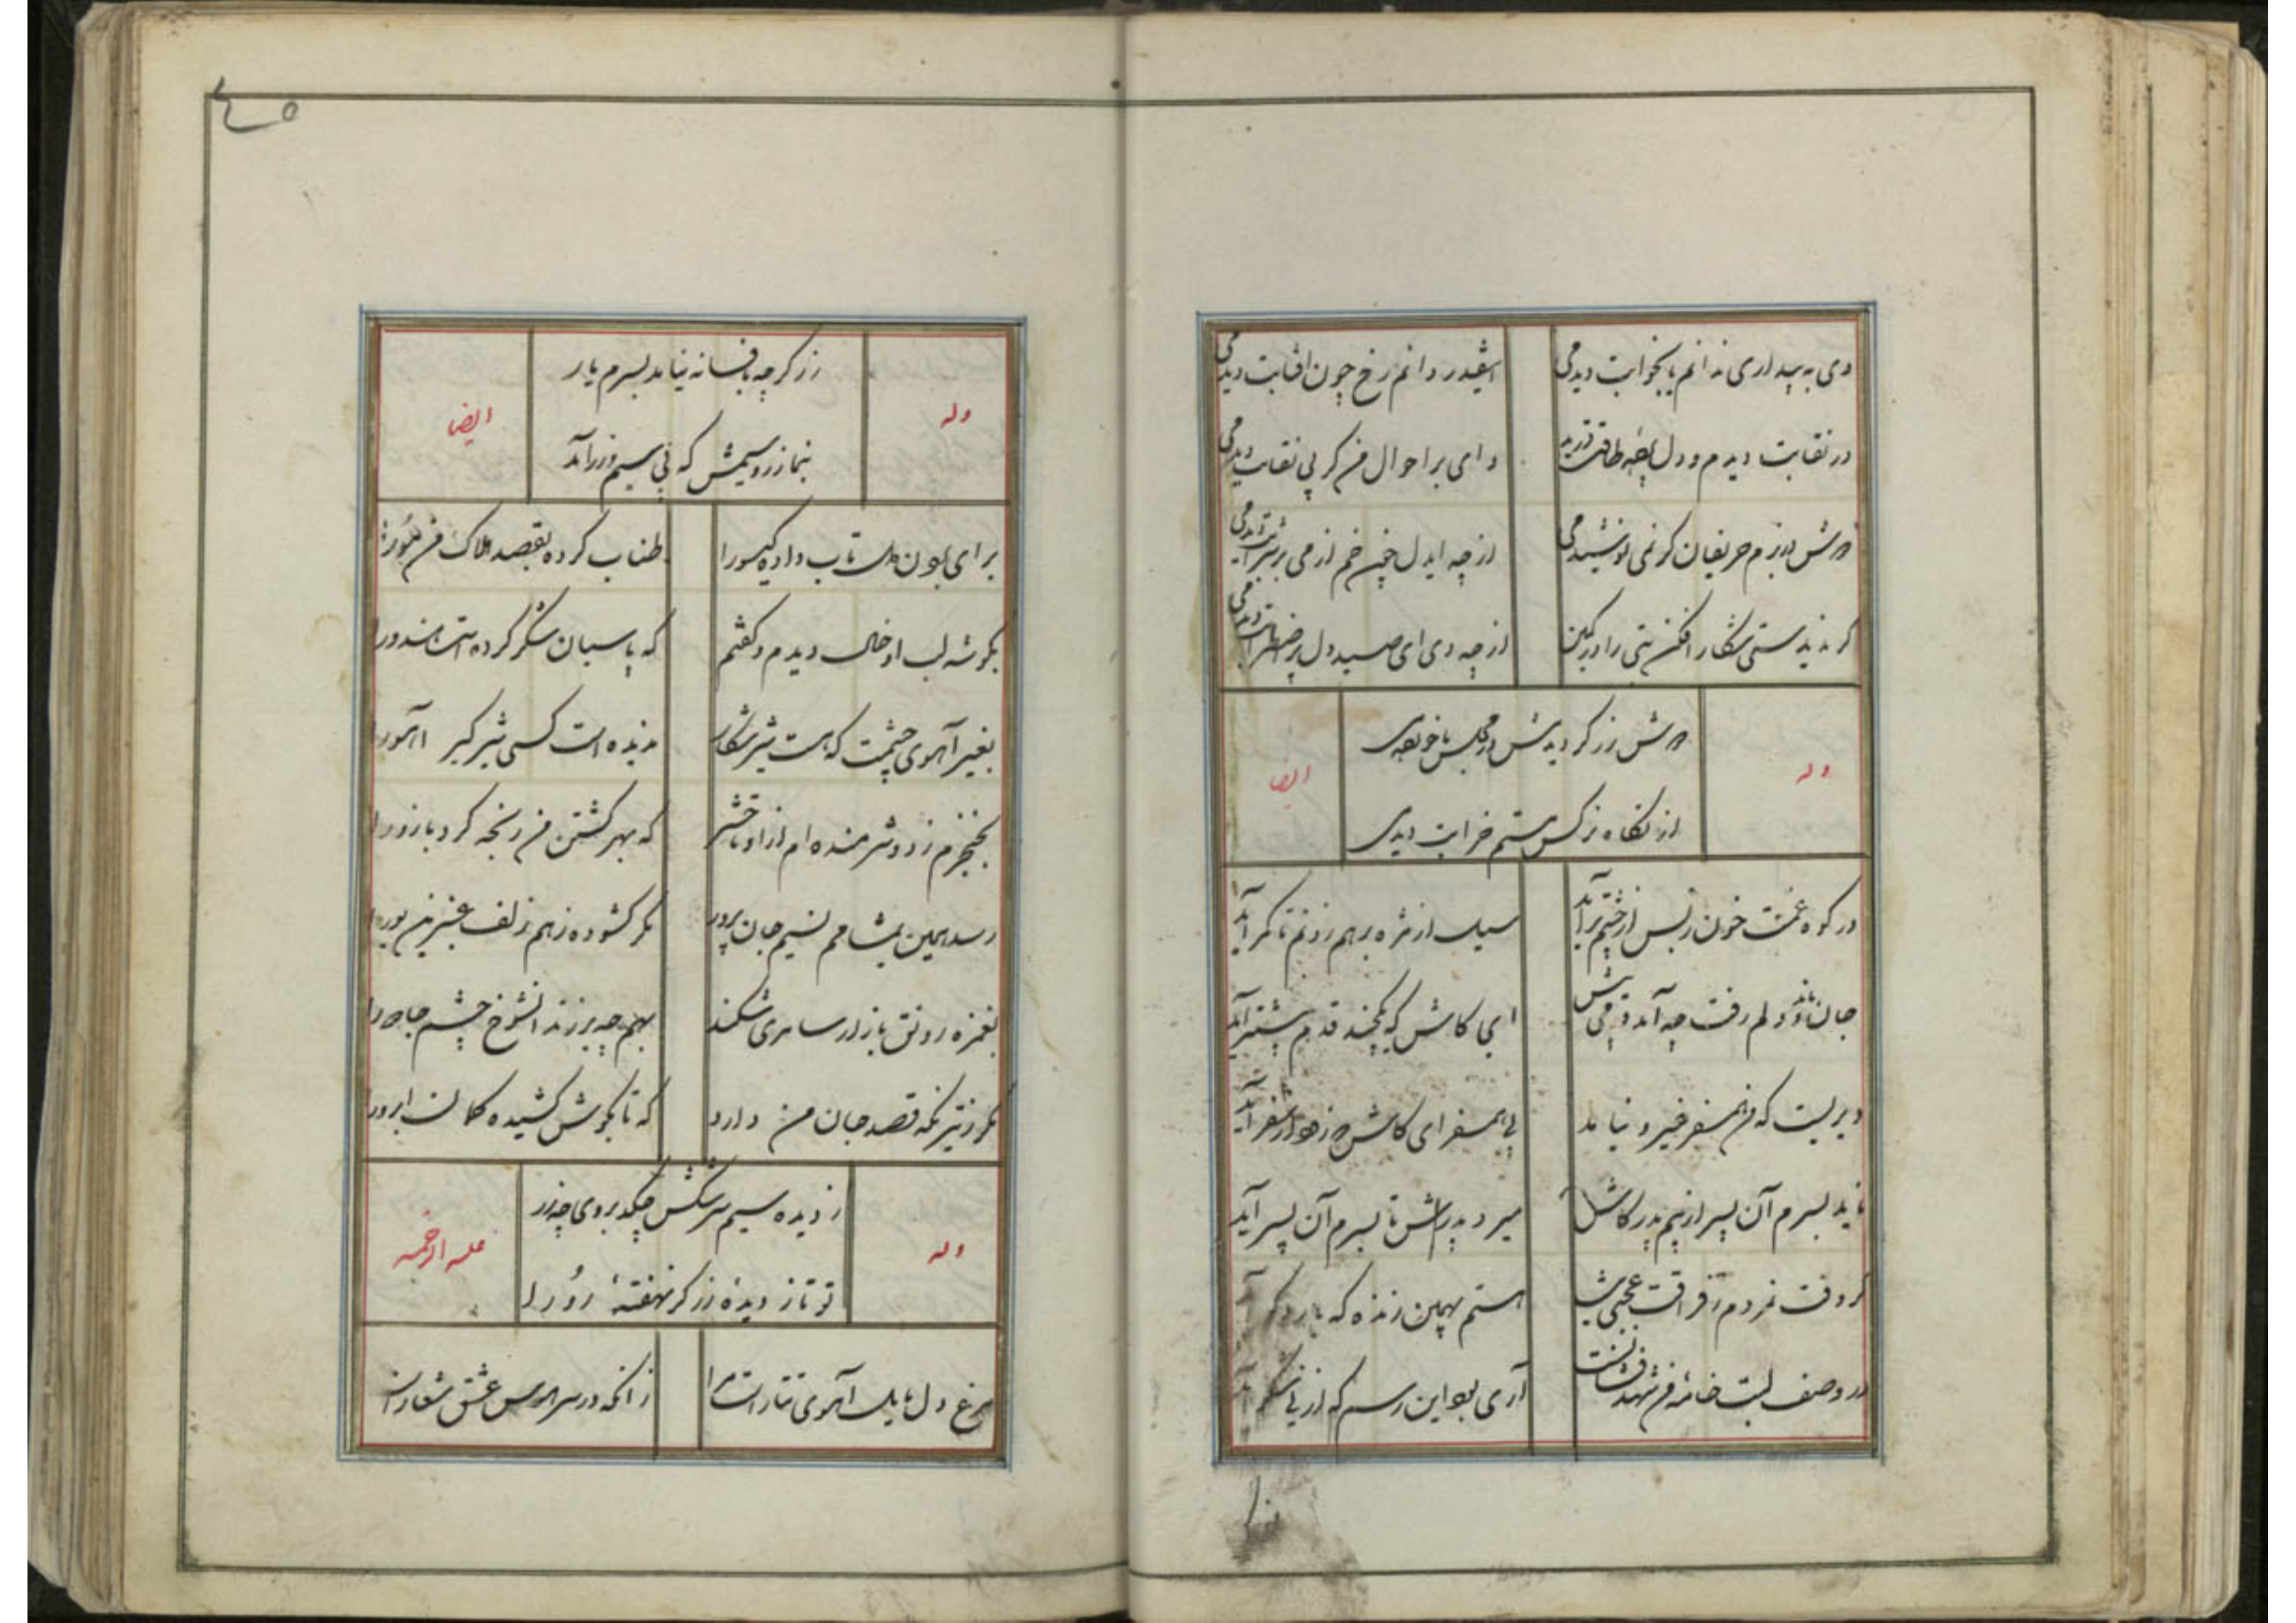 دی به بیداری ندانم یا بخوابت دیدمی
اینقدر دانم رخ چون افتابت دیدمی
در نقابت دیدم و دل طاقت
وای بر احوال من کر بی نقابت دیدمی
دوش در بزم حریفان کر نمی نوشیدمی
از چه ایدل چون خم از می
کر ندیدستی شکار افکن بتی را در کمین
از چه دی ای صید دل پر اضطرابت دیدمی
وله
دوش زرکر دیدمش در مجلس
ایضا
از نکاه نرکس مستم خرابت دیدمی
در کوه غمت خون ز بس از چشم برآید
سیلی از مژه برهم زدنم تا کمر آید
جان ماند و دلم رفت چه آمد
ای کاش که یکچند قدم پیشتر آید
دیریست که همسفر غیر و نیامد
بی همسفر ای کاش از سفر آید
ناید بسرم آن پسر از بیم پدر کاش
میرد پدرش تا بسرم آن پسر آید
کر وقت نمردم ز فراقت عجبی نیست
هستم بهمین زنده که یار دکر آید
در وصف لبت خامه من شهدفشانست
آری بود این رسم که از نی شکر آید
بنما
٤٥
وله
زرکر چه بافسانه نیاید بسرم یار
ایضا
بنما زر و سیمش که پی سیم و زر آید
برای بودن دل تاب داده کیسو را
طناب کرده بقصد هلاک من مو را
بکوشه لب او خال دیدم و کفتم
که پاسبان شکر کرده است هندو را
بغیر آهوی چشمت که هست شیر شکار
ندیده است کسی شیرکیر آهو را
بخنجرم زد و شرمنده ام از او تا حشر
که بهر کشتن من رنجه کرد بازو را
رسد همین بمشامم نسیم جان پرور
مکر کشوده ز هم زلف عنبرین بو را
بغمزه رونق بازار سامری شکند
بهم چه برزند انشوخ چشم جادو را
مکر ز تیر نکه قصد جان من دارد
که تا بکوش کشیده کمان ابرو را
وله
ز دیده سیم سرشکش چکد بروی چو زر
علیه الرحمه
تو تا ز دیده زرکر نهفتهٔ رو را
مرغ دل مایل آهوی تتار است مرا
زانکه در سر هوس عشق شعار است